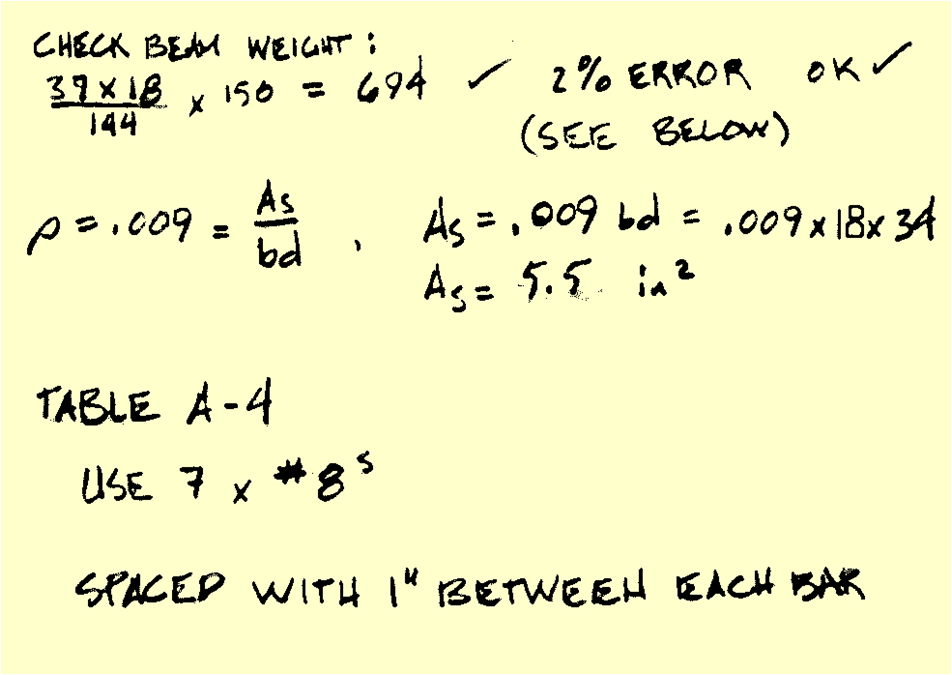 CHECK BEAM WEIGHT:
37 x 18 / 144 x 150 = 694 ✓ 2% ERROR OK ✓
(SEE BELOW)
ρ = .009 = As / bd , As = .009 bd = .009 x 18 x 34
As = 5.5 in²
TABLE A-4
USE 7 x #8s
SPACED WITH 1" BETWEEN EACH BAR